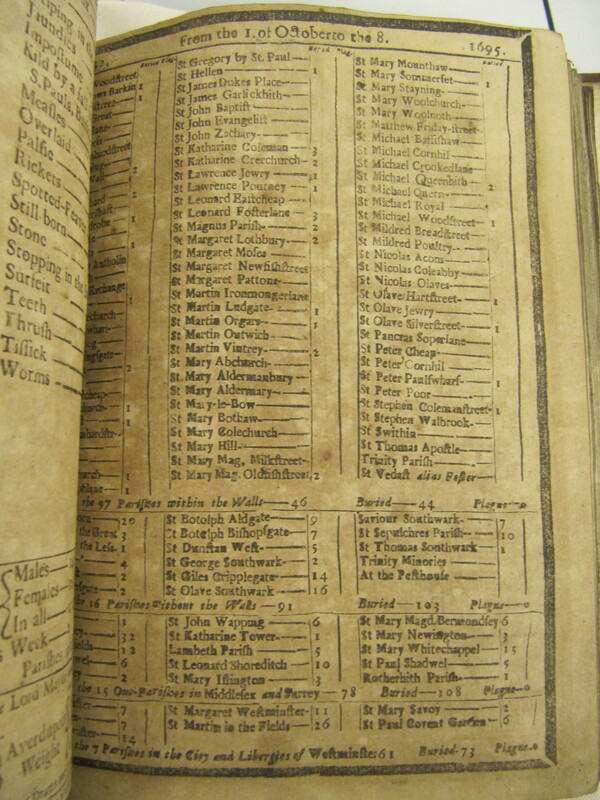 From the 1. of October to the 8. 1695.
iping in th
Jaundies
Impostume
Kild by a fall
S. Pauls B
Measles
Overlaid
Palsie
Rickets
Spotted-Feaver
Still born
Stone
Stopping in the
Surfeit
Teeth
Thrush
Tissick
Worms
Males
Females
In all
Week
Parishes
Lord Mayor
Averdupois
Weight
Woodstreet
Barkin 1
St Gregory by St. Paul
St Hellen 1
St James Dukes Place
St James Garlickhith
St John Baptist
St John Evangelist
St John Zachary
St Katharine Coleman 3
St Katharine Creechurch 2
St Lawrence Jewry 1
St Lawrence Pourney 1
St Leonard Eastcheap
St Leonard Fosterlane 3
St Magnus Parish 2
St Margaret Lothbury 2
St Margaret Moses
St Margaret Newfishstreet
St Margaret Pattons
St Martin Ironmongerlane
St Martin Ludgate 1
St Martin Orgars 1
St Martin Outwich
St Martin Vintrey 2
St Mary Abchurch
St Mary Aldermanbury
St Mary Aldermary
St Mary-le-Bow
St Mary Bothaw
St Mary Colechurch
St Mary Hill
St Mary Mag. Milkstreet
St Mary Mag. Oldfishstreet 2
St Mary Mounthaw
St Mary Sommerset 1
St Mary Stayning
St Mary Woolchurch
St Mary Woolnoth
St Matthew Friday-street
St Michael Bassishaw
St Michael Cornhil
St Michael Crookedlane
St Michael Queenhith 2
St Michael Quern
St Michael Royal
St Michael Woodstreet 1
St Mildred Breadstreet
St Mildred Poultry
St Nicolas Acons
St Nicolas Coleabby
St Nicolas Olaves
St Olave Hartstreet 1
St Olave Jewry
St Olave Silverstreet 1
St Pancras Soperlane
St Peter Cheap
St Peter Cornhil
St Peter Paulswharf 1
St Peter Poor
St Stephen Colemanstreet 1
St Stephen Walbrook
St Swithin
St Thomas Apostle
Trinity Parish
St Vedast alias Foster
the 97 Parishes within the Walls—46 Buried—44 Plague—0
20
the Great 3
the Less 1
4
2
2
St Botolph Aldgate 9
St Botolph Bishopsgate 7
St Dunstan West 5
St George Southwark 2
St Giles Cripplegate 14
St Olave Southwark 16
Saviour Southwark 7
St Sepulchres Parish 10
St Thomas Southwark 1
Trinity Minories
At the Pesthouse
the 16 Parishes without the Walls—91 Buried—103 Plague—0
1
32
12
6
2
St John Wapping 6
St Katharine Tower 1
Lambeth Parish 5
St Leonard Shoreditch 10
St Mary Islington 3
St Mary Magd. Bermondsey 6
St Mary Newington 3
St Mary Whitechappel 15
St Paul Shadwel 5
Rotherhith Parish 1
the 15 Out-Parishes in Middlesex and Surrey—78 Buried—108 Plague—0
7
7
14
St Margaret Westminster 11
St Martin in the Fields 26
St Mary Savoy 2
St Paul Covent Garden 6
the 7 Parishes in the City and Liberties of Westminster 61 Buried-73 Plague-0